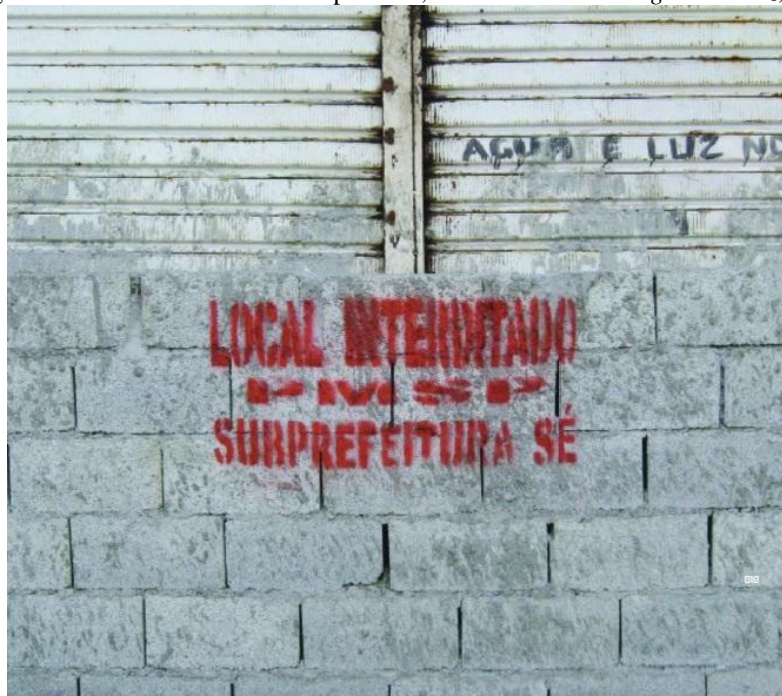 AGUA E LUZ NO
LOCAL INTERDITADO
PMSP
SUBPREFEITURA SÉ